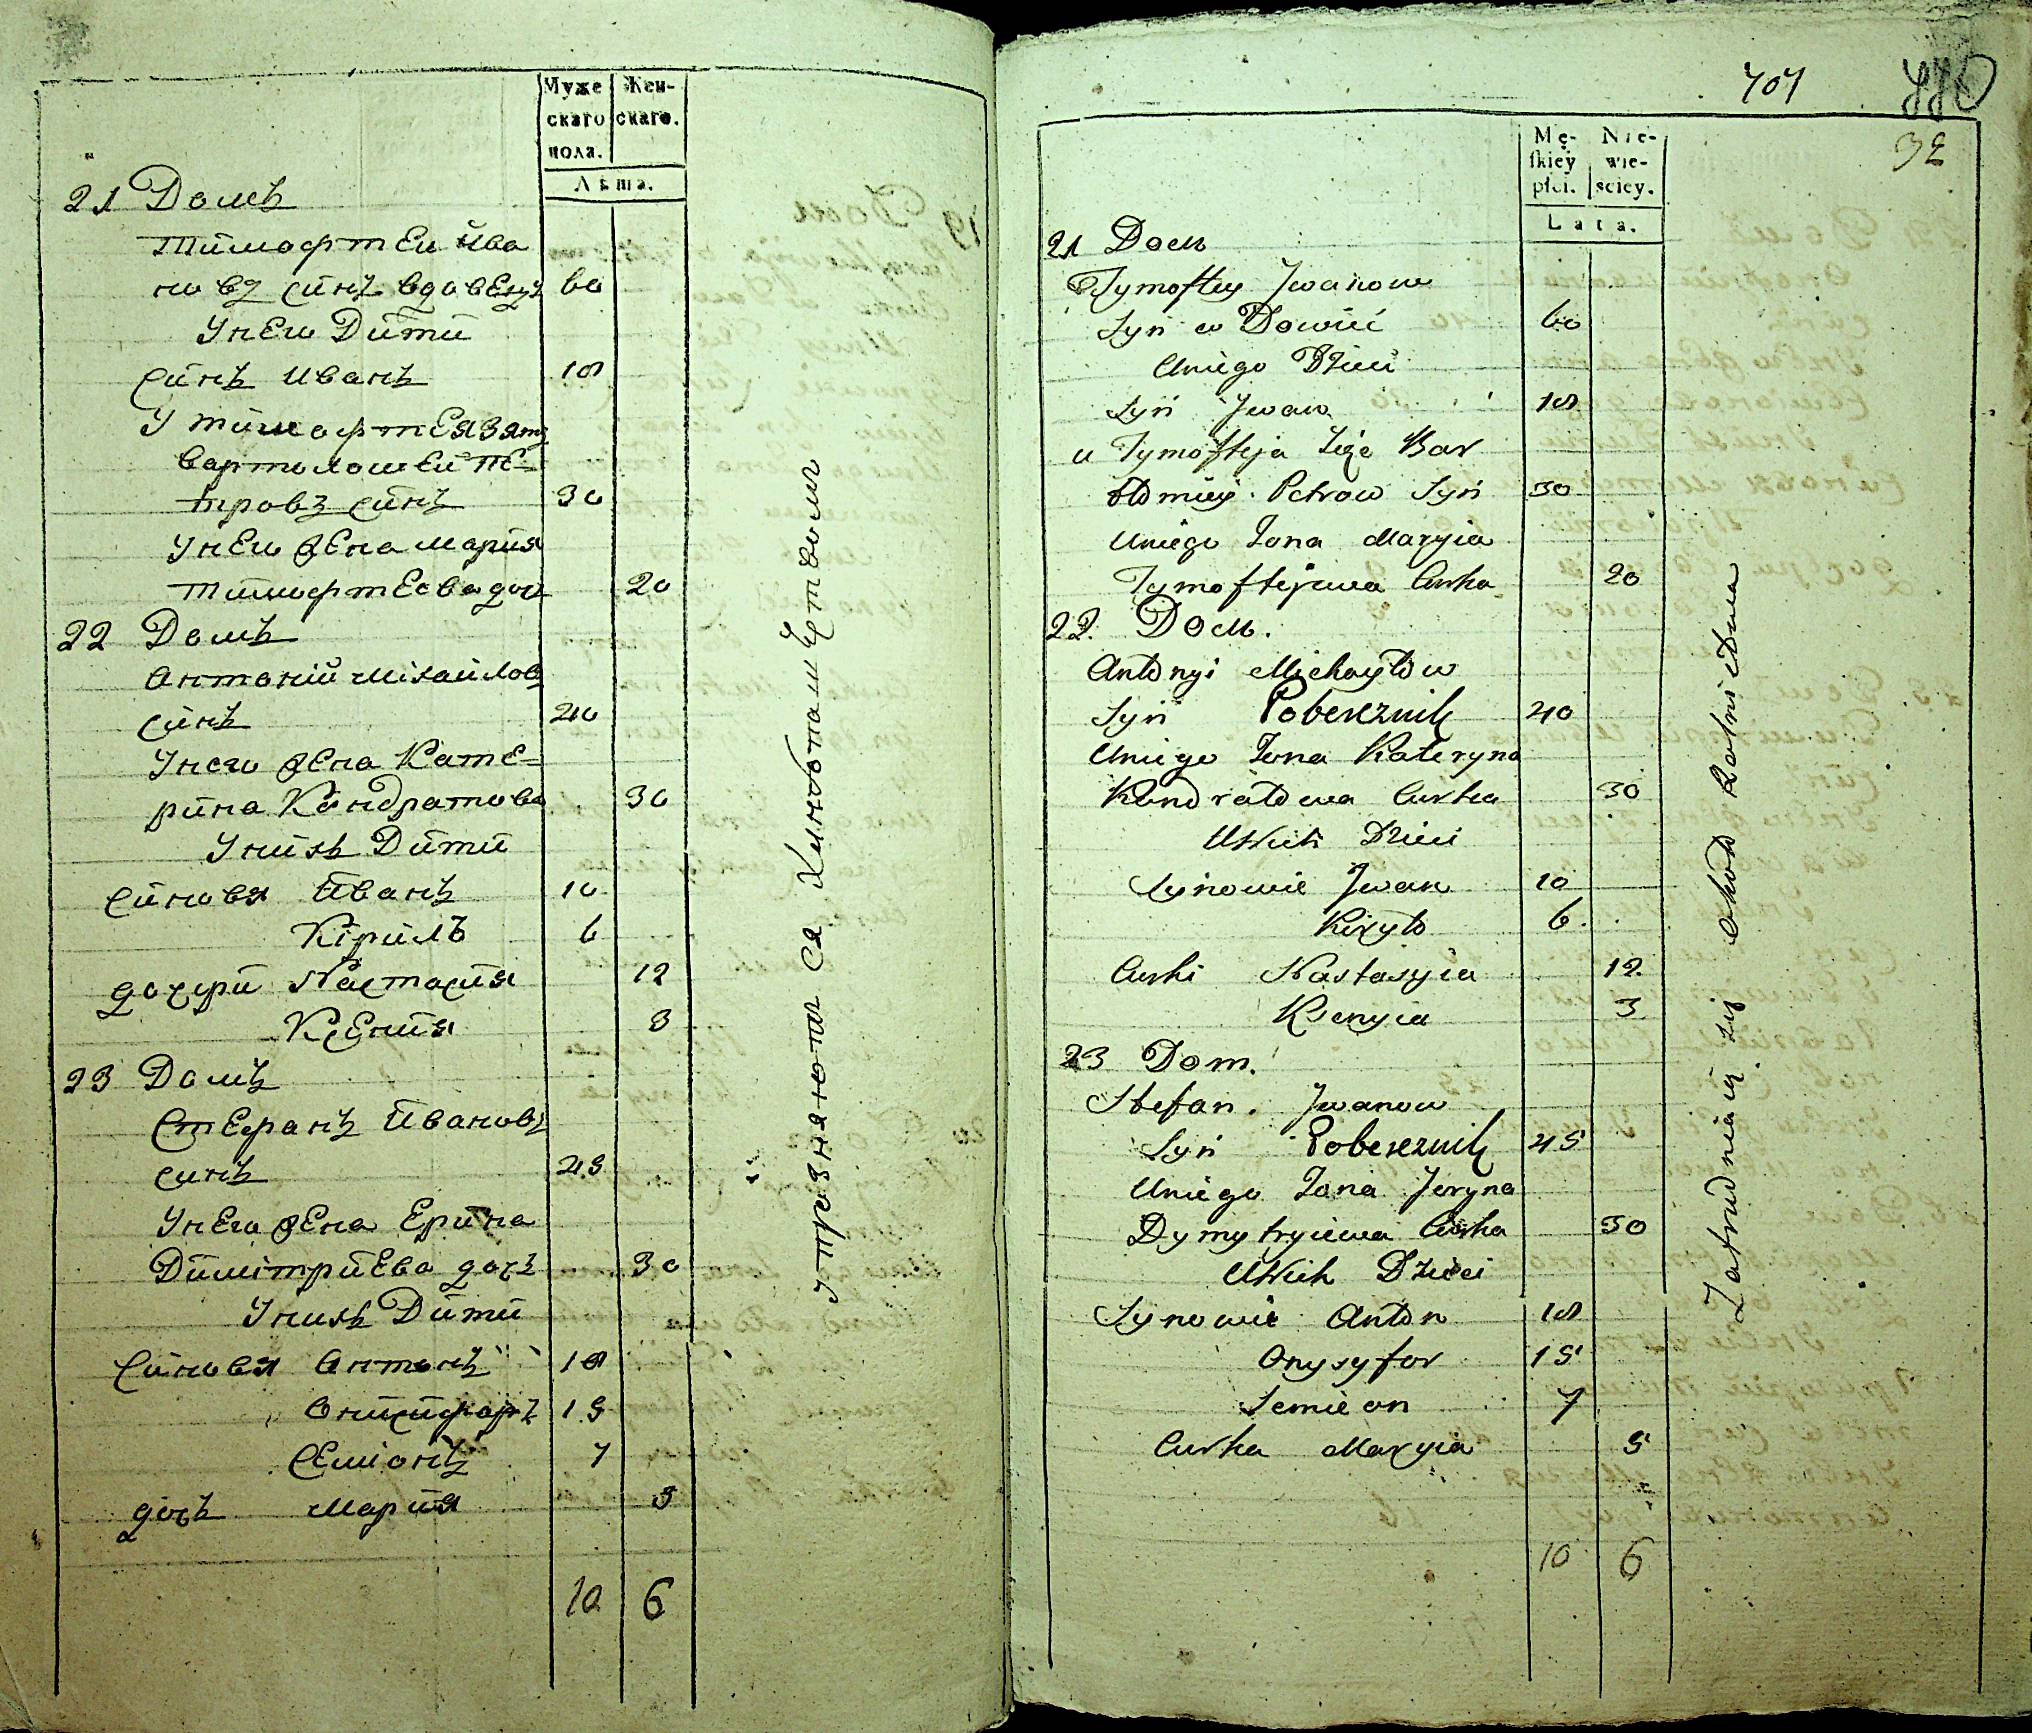 Муже
скаго
пола.
Жен-
скаго.
Лѣта.
21 Домъ
Тимофтей Ива
новъ синъ вдовецъ 60
У него Дити
синъ Иванъ 18
У тимофтея зять
Вартоломей Пе-
тровъ синъ 30
У него жена Мария
Тимофтеева доч 20
22 Домъ
Антоній Міхайлов
синъ 40
У него жена Кате-
рина Кондратова 30
У нихъ Дити
синовя Иванъ 10
Кірилъ 6
дочери Настасия 12
Ксения 3
23 Домъ
Стефанъ Ивановъ
синъ 45
У него жена Ерина
Димітриева дочъ 30
У нихъ Дити
синовя Антонъ 18
Онисифоръ 15
Семіонъ 7
дочъ Мария 5
10 6
упражняются хлѣботамъ
707
770
32
Mę-
skiey
płci.
Nie-
wie-
sciey.
Lata.
21 Dom
Tymoftey Jwanow
Syn w Dowiec 60
Uniego Dzieci
Syn Jwan 18
u Tymofteja Zięc Bar
tłomiey Petrow Syn 30
Uniego Zona Maryia
Tymoftejewa Curka 20
22. Dom.
Antonyi Michayłow
Syn Pobereznik 40
Uniego Zona Kateryna
Kondratowa Curka 30
UNich Dzieci
Synowie Jwan 10
Kiryło 6
Curki Nastasyia 12
Ksenyia 3
23 Dom.
Stefan. Jwanow
Syn Pobereznik 45
Uniego Zona Jeryna
Dymytryiewa Curka 30
UNich Dzieci
Synowie Anton 18
Onysyfor 15
Semieon 7
Curka Maryia 5
10 6
Zatrudniaią się okoto Rolnictwa